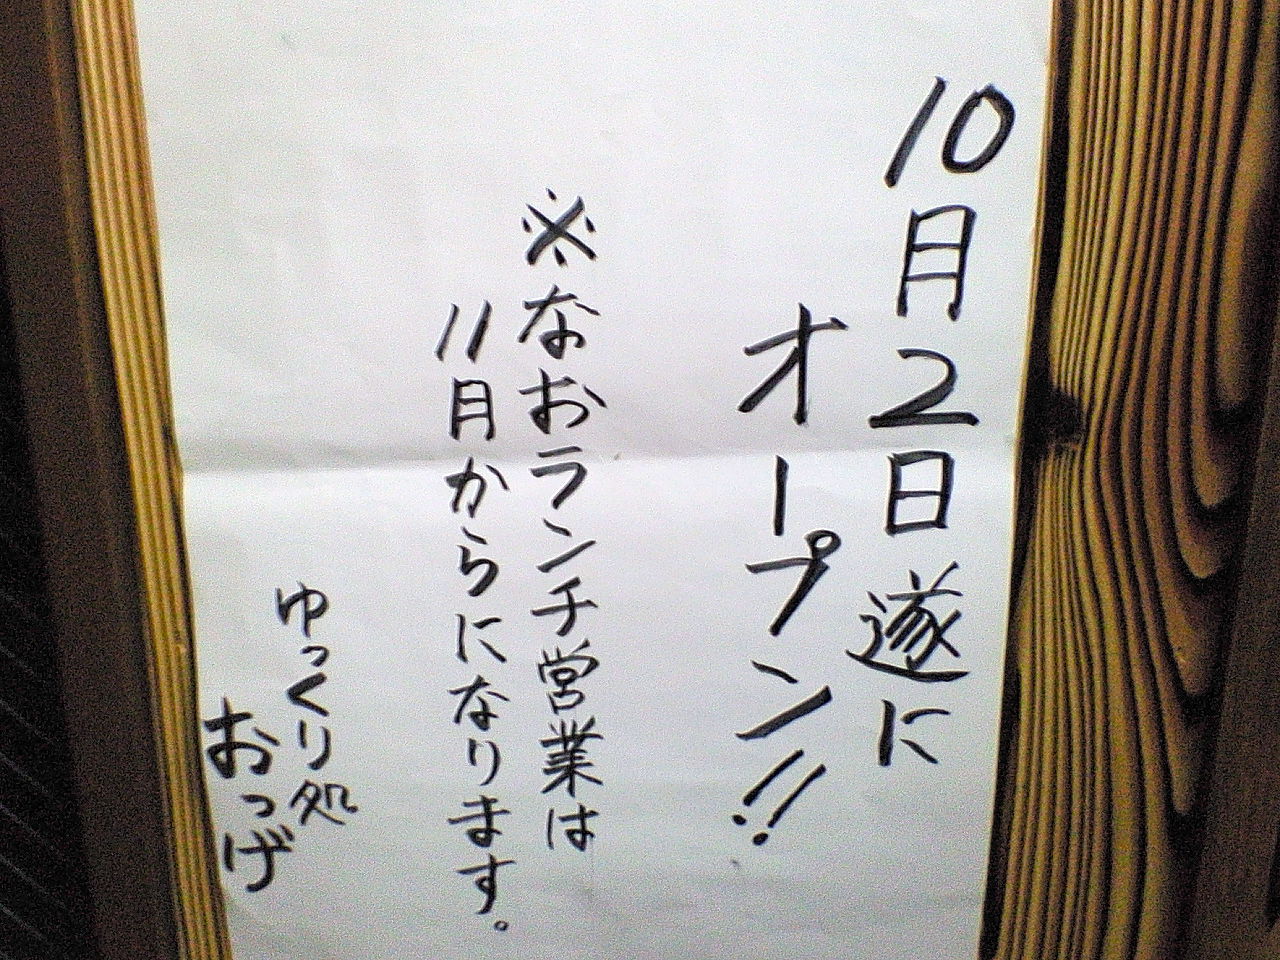 10月2日遂に
オープン!!
※なおランチ営業は
11月からになります。
ゆっくり処
おっげ